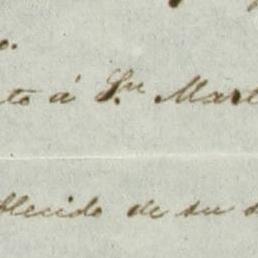 o.
to á Sr. Mart
blecido de su s